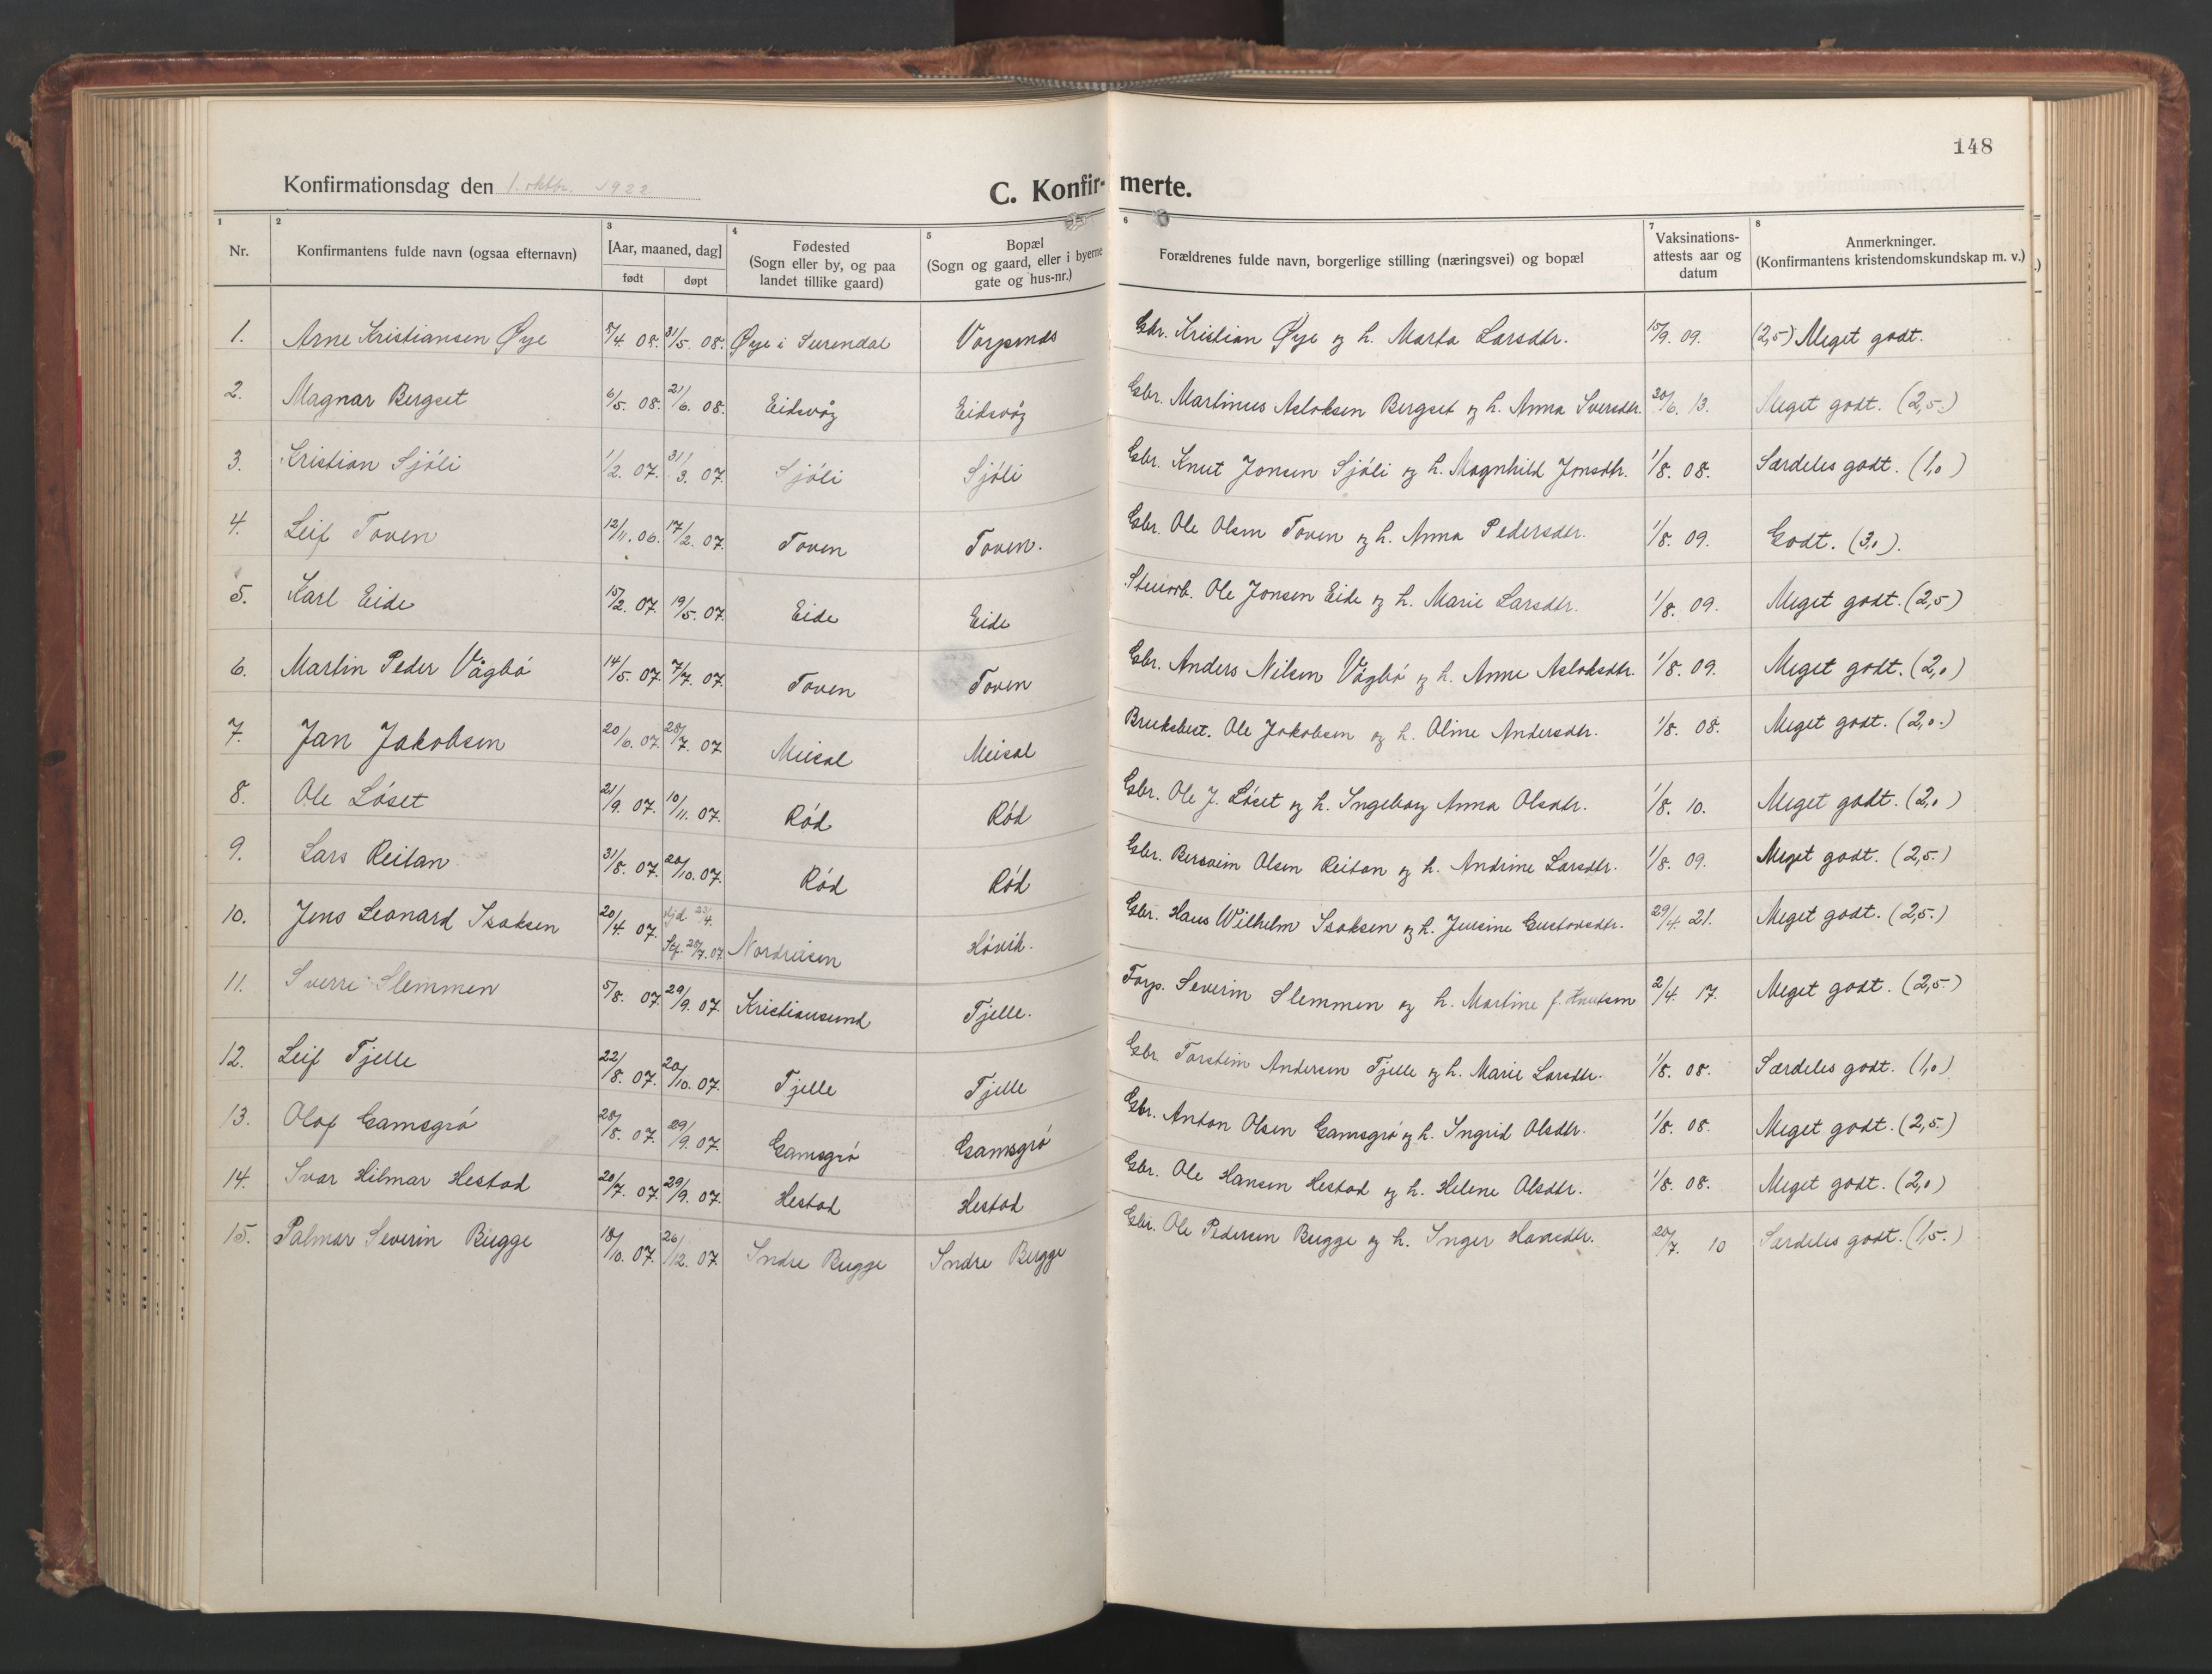 148
Konfirmationsdag den 1. oktbr. 1922
C. Konfirmerte.
1 2 3 4 5 6 7 8
Nr. Konfirmantens fulde navn (ogsaa efternavn) [Aar, maaned, dag] født døpt Fødested (Sogn eller by, og paa landet tillike gaard) Bopæl (Sogn og gaard, eller i byerne gate og hus-nr.) Forældrenes fulde navn, borgerlige stilling (næringsvei) og bopæl Vaksinations-attests aar og datum Anmerkninger. (Konfirmantens kristendomskundskap m. v.)
1. Arne Kristiansen Øye 8/4 08. 31/5 08. Øye i Surendal Gbr. Kristian Øye og h. Marta Larsdtr. 15/9. 09. (2,5) Meget godt.
2. Magnar Bergset 6/5. 08. 21/6. 08. Eidsvåg Eidsvåg Gbr. Martinus Aslaksen Bergset og h. Anna Iversdtr. 30/6. 13. Meget godt. (2,5.)
3. Kristian Sjöli 1/2. 07. 31/3. 07. Sjöli Sjöli Gbr. Knut Jonsen Sjöli og h. Magnhild Jonsdtr. 1/8. 08. Særdeles godt. (1,0)
4. Leif Toven 12/11. 06. 17/2. 07. Toven Toven. Gbr. Ole Olsen Toven og h. Anna Pedersdtr. 1/8. 09. Godt. (3,0).
5. Karl Eide 15/2. 07. 19/5. 07. Eide Eide Stenarb. Ole Jonsen Eide og h. Marie Larsdtr. 1/8. 09. Meget godt. (2,5)
6. Martin Peder Vågbö 14/5. 07. 7/7. 07. Toven Toven Gbr. Anders Nilsen Vågbö og h. Anne Aslaksdtr. 1/8. 09. Meget godt. (2,0)
7. Jan Jakobsen 20/6. 07. 28/7. 07. Meisal Meisal Bruksbest. Ole Jakobsen og h. Oline Andersdtr. 1/8. 08. Meget godt. (2,0.)
8. Ole Löset 21/9. 07. 10/11. 07. Röd Röd Gbr. Ole J. Löset og h. Ingeborg Anna Olsdtr. 1/8. 10. Meget godt. (2,0)
9. Lars Reitan 31/8. 07. 20/10. 07. Röd Röd Gbr. Bersvein Olsen Reitan og h. Andrine Larsdtr. 1/8. 09. Meget godt. (2,5.)
10. Jens Leonard Isaksen 20/4. 07. hjd 22/4. Stf. 28/7. 07. Nordreisen Hövik. Gbr. Hans Wilhelm Isaksen og h. Jensine Gustavsdtr. 29/4. 21. Meget godt. (2,5.)
11. Sverre Slemmen 5/8. 07. 29/9. 07. Kristiansund Tjelle. Forp. Severin Slemmen og h. Martine f. Knutsen 2/4. 17. Meget godt. (2,5)
12. Leif Tjelle 22/8. 07. 20/10. 07. Tjelle Tjelle Gbr. Torstein Andersen Tjelle og h. Marie Larsdtr. 1/8. 08. Særdeles godt. (1,0)
13. Olaf Gamsgrö 28/8. 07. 29/9. 07. Gamsgrö Gamsgrö Gbr. Anton Olsen Gamsgrö og h. Ingrid Olsdtr. 1/8. 08. Meget godt. (2,5.)
14. Ivar Hilmar Hestad 20/7. 07. 29/9. 07. Hestad Hestad Gbr. Ole Hansen Hestad og h. Helene Olsdtr. 1/8. 08. Meget godt. (2,0)
15. Palmar Severin Bugge 18/10. 07. 26/12. 07. Indre Bugge Indre Bugge Gbr. Ole Pedersen Bugge og h. Inger Hansdtr. 20/7. 10 Særdeles godt. (1,5.)